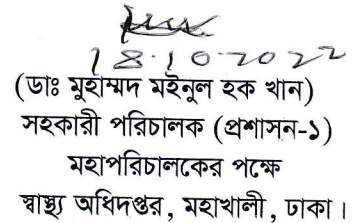 18.10.2022
(ডাঃ মুহাম্মদ মইনুল হক খান)
সহকারী পরিচালক (প্রশাসন-১)
মহাপরিচালকের পক্ষে
স্বাস্থ্য অধিদপ্তর, মহাখালী, ঢাকা।